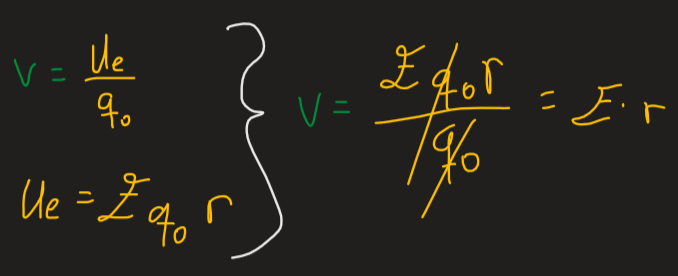 V = Ue/q₀
Ue = E q₀ r
V = E q₀ r / q₀ = E · r